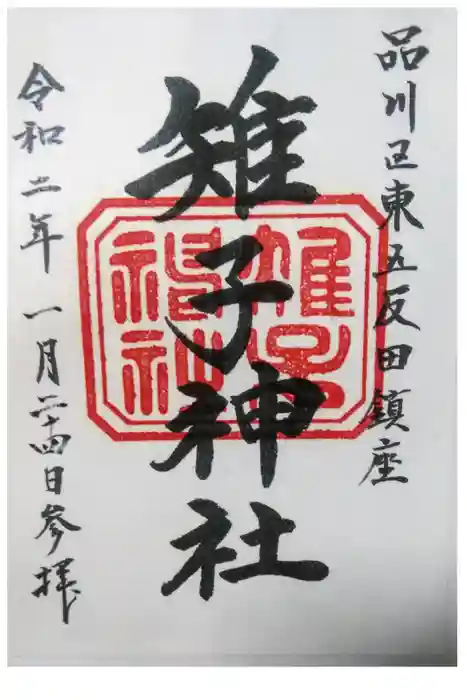 品川区東五反田鎮座
雉子神社
雉子神社
令和二年 一月二十四日参拝